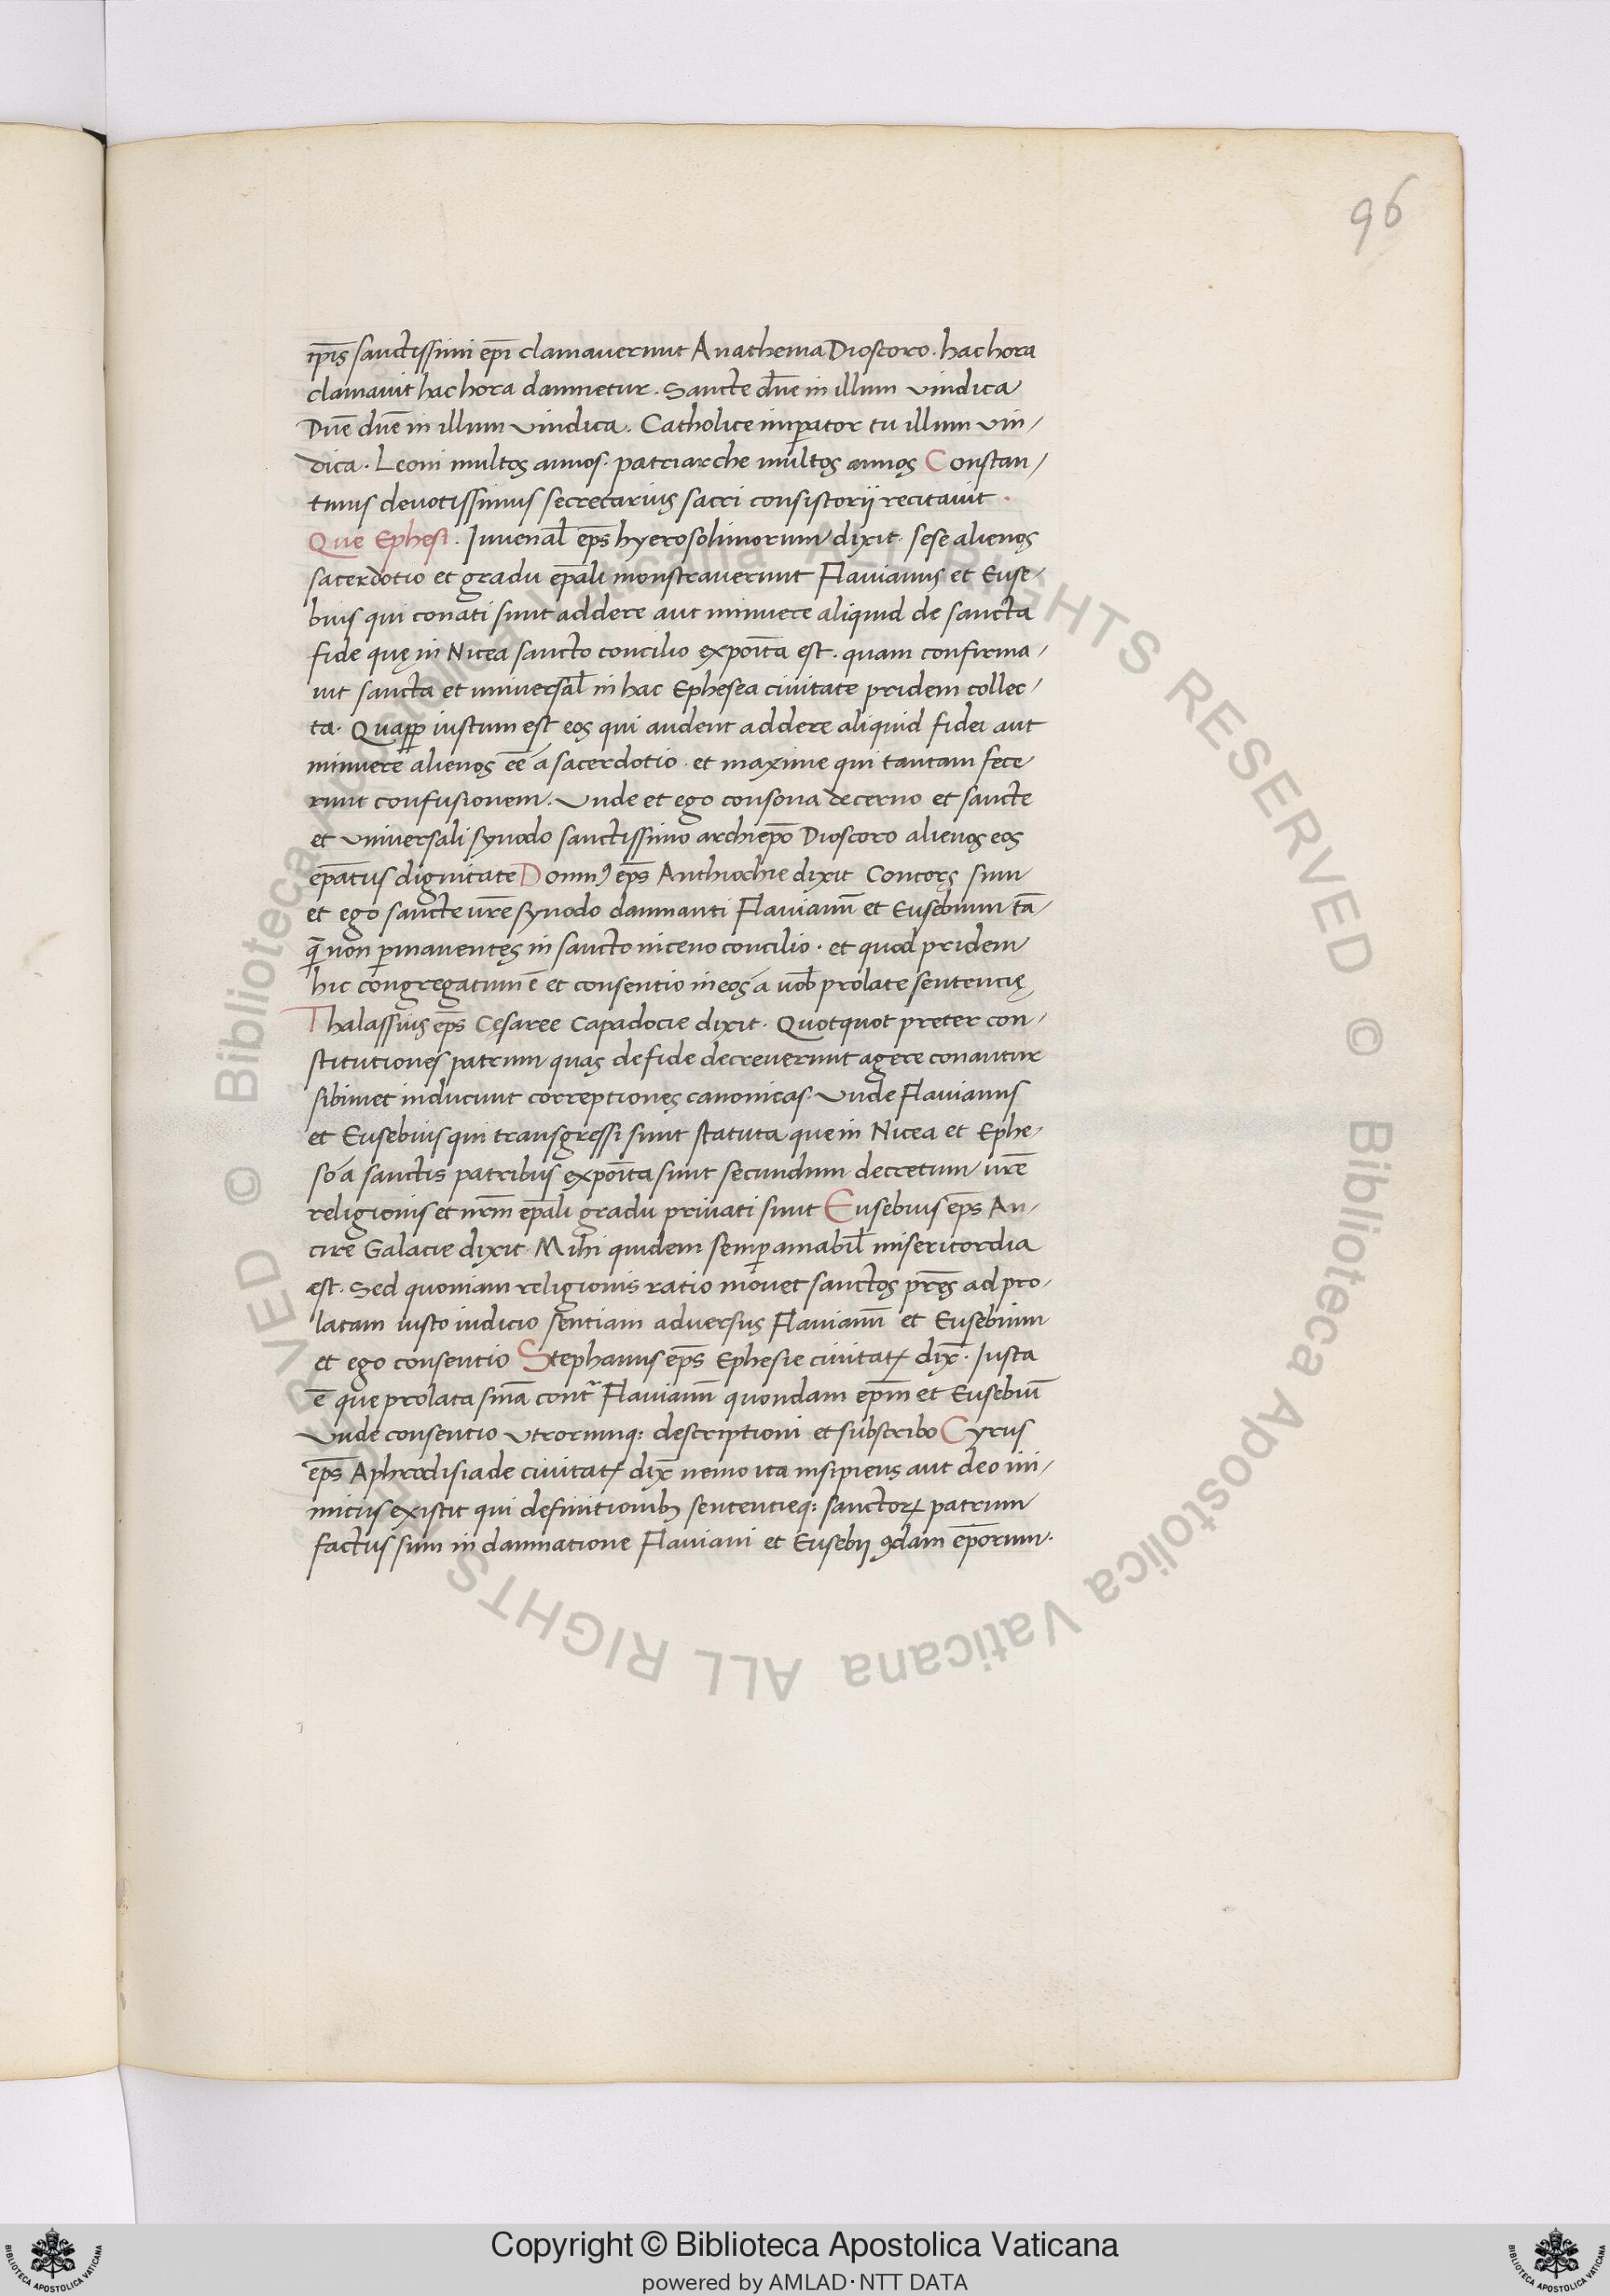 96
ip̄is sanctissimi ep̄i clamaverunt Anathema Dioscoro. hac hora
clamavit hac hora damnetur. Sancte dn̄e in illum vindica
Dn̄e dn̄e in illum vindica. Catholice imꝑator tu illum vin/
dica. Leoni multos annos. patriarche multos annos Constan/
tinus devotissimus secretarius sacri consistorii recitavit.
Que Ephesi. Iuvenal̄ ep̄s hyerosolimorum dixit. sese alienos
sacerdotio et gradu ep̄ali monstraverunt Flavianus et Euse/
bius qui conati sunt addere aut minuere aliquid de sancta
fide quę in Nicea sancto concilio expoīta est. quam confirma/
vit sancta et universal̄ in hac Ephesea civitate pridem collec/
ta. Quaꝓꝑ iustum est eos qui audent addere aliquid fidei aut
minuere alienos eē á sacerdotio. et maxime qui tantam fece
runt confusionem. Unde et ego consona decerno et sancte
et universali synodo sanctissimo archiep̄o Dioscoro alienos eos
ep̄atus dignitate Domnꝰ ep̄s Anthiochie dixit Concors sum
et ego sancte vr̄e synodo damnanti Flavianū et Eusebium tā/
q̄ non ꝑmanentes in sancto niceno concilio. et quod pridem
hic congregatum ē et consentio in eos á vob̄ prolate sentencię
Thalassius ep̄s Cęsaree Capadocie dixit. Quotquot preter con/
stitutiones patrum quas de fide decreverunt agere conantur
sibimet inducunt correptiones canonicas. Unde Flavianus
et Eusebius qui transgressi sunt statuta que in Nicea et Ephe/
so á sanctis patribus expoīta sunt secundum decretum vr̄e
religionis et nr̄m ep̄ali gradu privati sunt Eusebius ep̄s An/
cire Galacie dixit. Mihi quidem semꝑ amabil̄ misericordia
est. Sed quoniam religionis ratio movet sanctos pr̄es ad pro/
latam iusto iudicio sēntiam adversus Flavianū et Eusebium
et ego consentio Stephanus ep̄s Ephesie civitatꝭ dix̄. Iusta
ē que prolata sn̄ia contᵃ Flavianū quondam ep̄m et Eusebiū
Unde consentio utrorumq: descriptioni et subscribo Cyrus
ep̄s Aphrodisiade civitatꝭ dix̄ nemo ita insipiens aut deo ini/
micus existit qui definitionibꝫ sententieq: sanctoꝝ patrum
factus sum in damnatione Flaviani et Eusebii ꝯdam ep̄orum.
Copyright © Biblioteca Apostolica Vaticana
powered by AMLAD·NTT DATA
© Biblioteca Apostolica Vaticana ALL RIGHTS RESERVED © Biblioteca Apostolica Vaticana ALL RIGHTS RESERVED
BIBLIOTECA APOSTOLICA VATICANA
BIBLIOTECA APOSTOLICA VATICANA